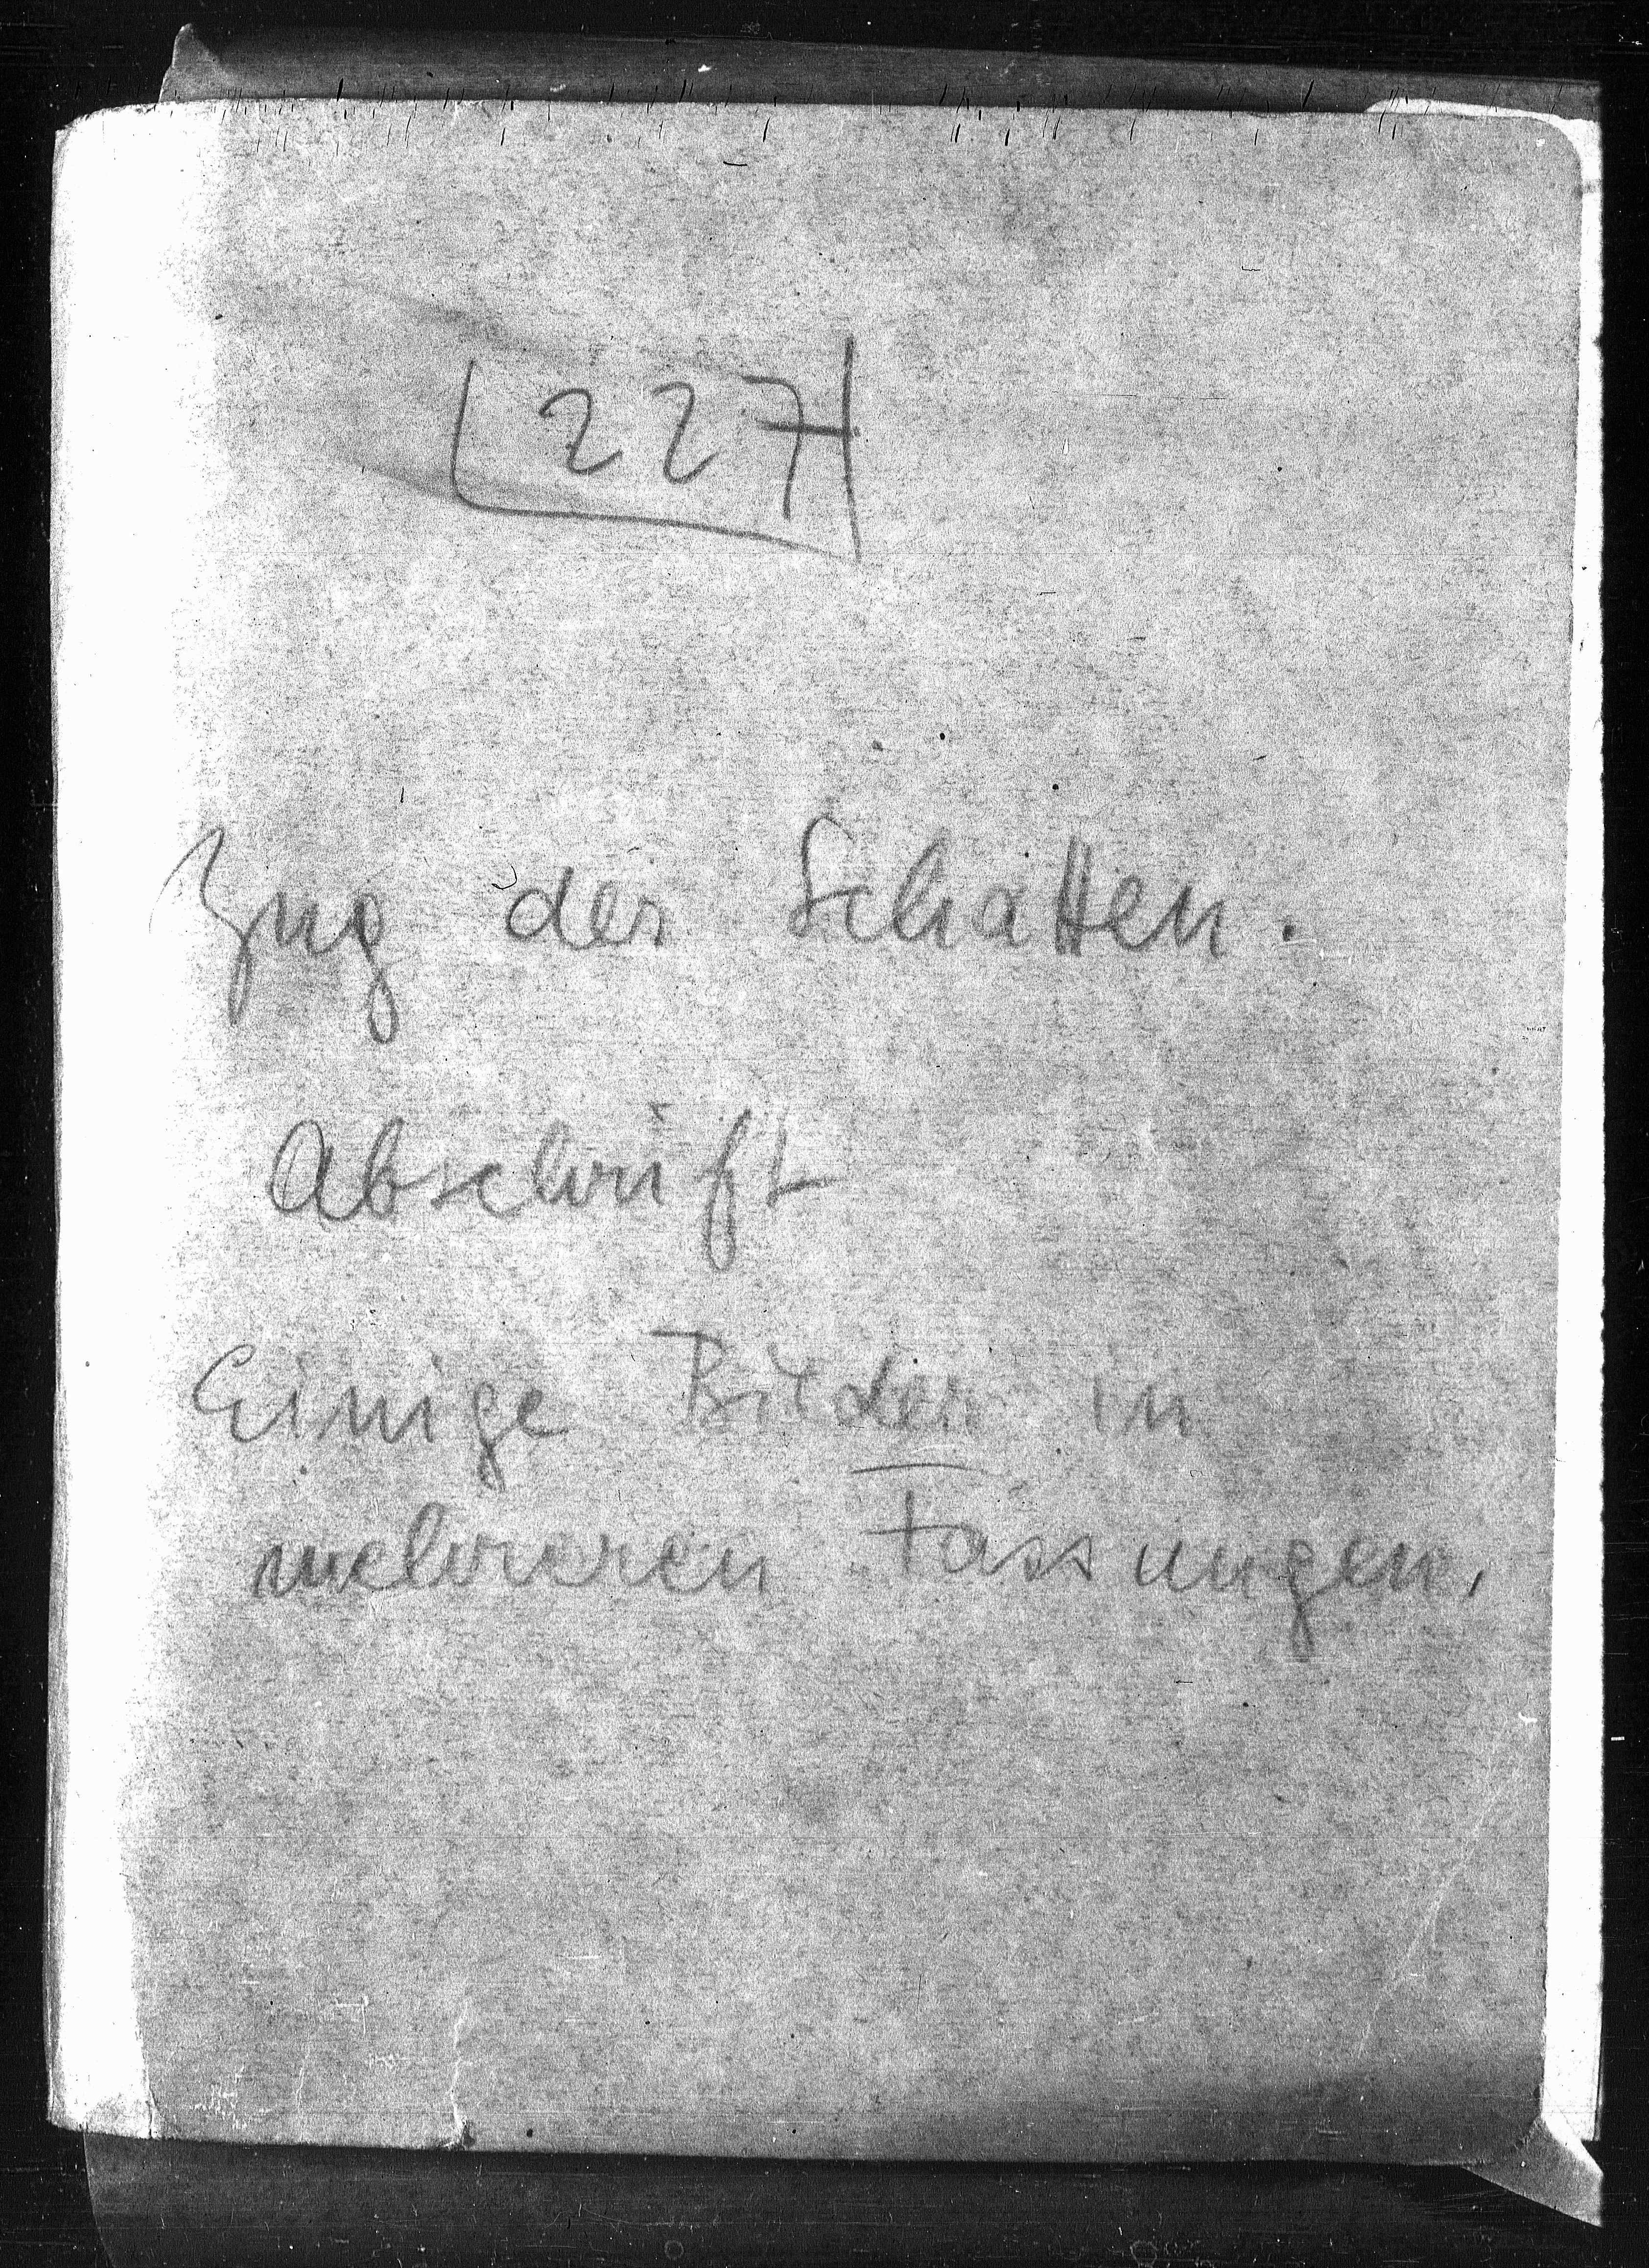 227
Zug der Schatten.
Abschrift
Einige Bilder in
mehreren Fassungen.